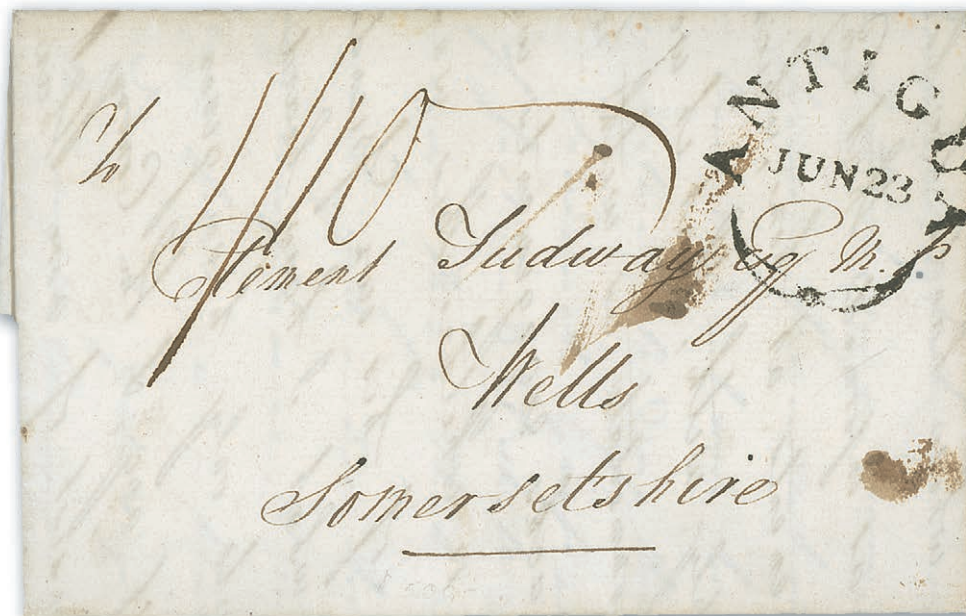 ANTIGUA
JUN 23
1/10
Clement Tudway esq M.P
Wells
Somersetshire